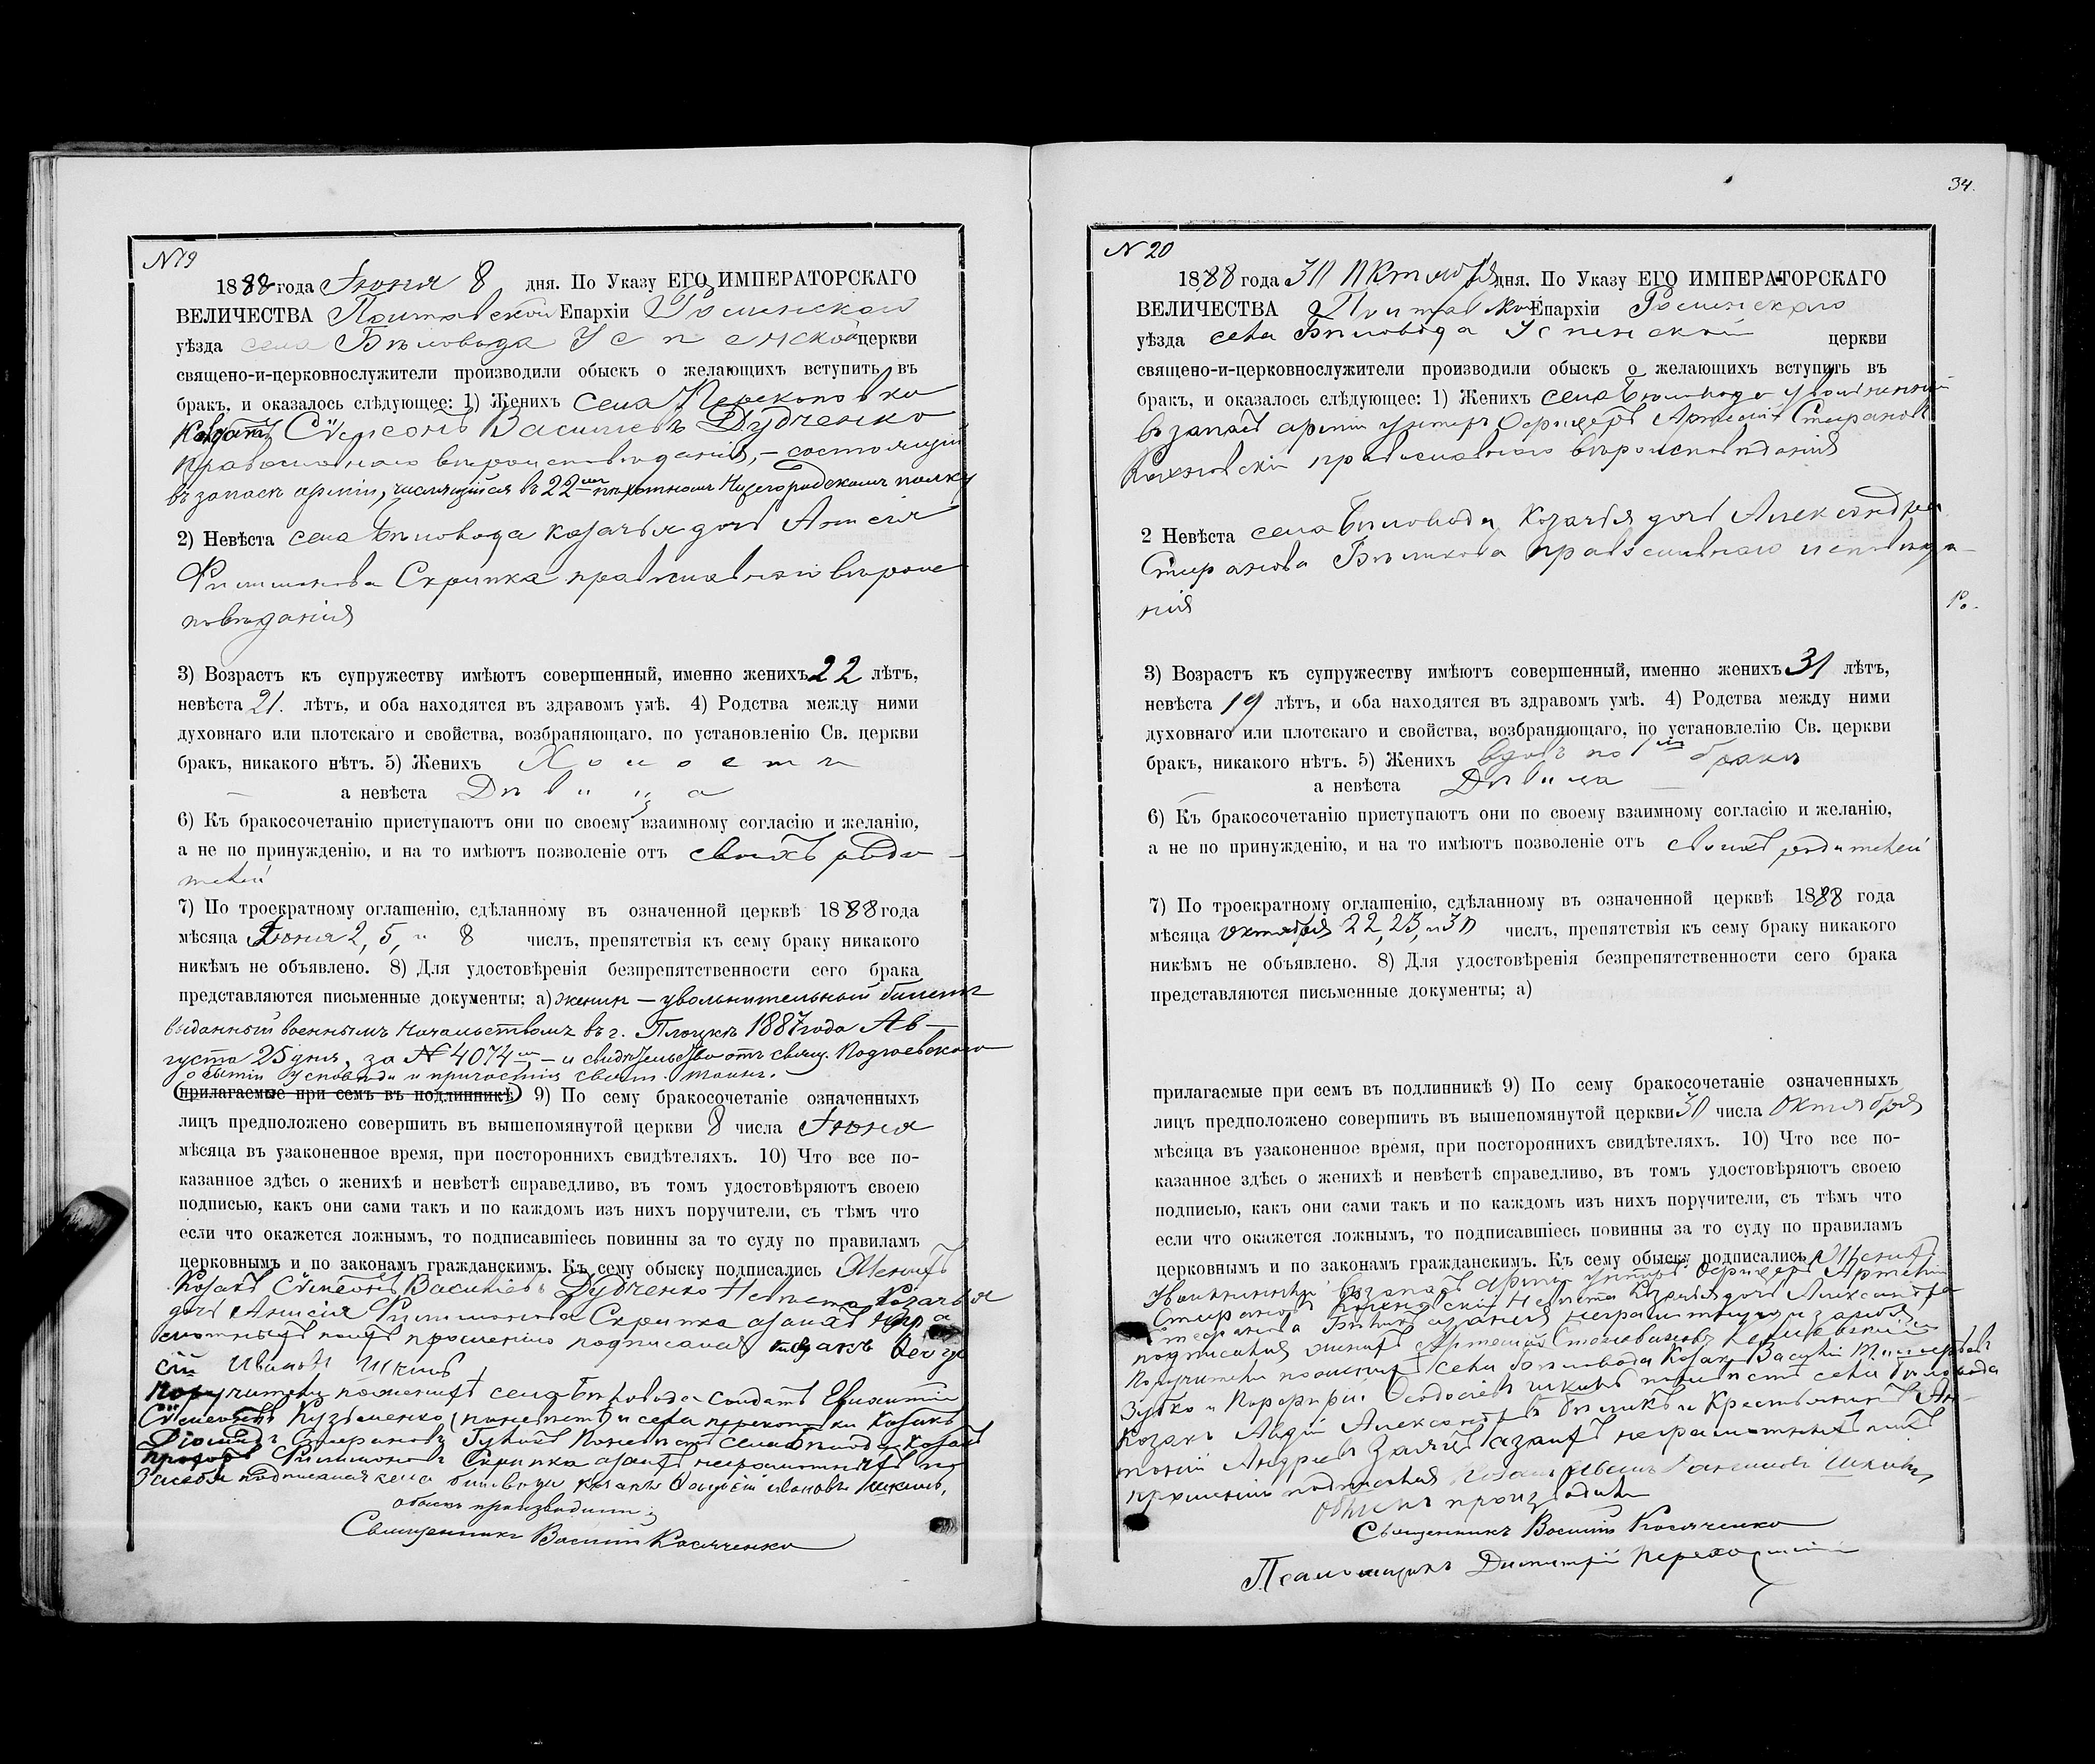 34.
N 19
1888 года Іюня 8 дня. По Указу ЕГО ИМПЕРАТОРСКАГО
ВЕЛИЧЕСТВА Полтавской Епархіи Роменскаго
уѣзда села Бѣловода Успенской церкви
священо-и-церковнослужители производили обыскъ о желающихъ вступить въ
бракъ, и оказалось слѣдующее: 1) Женихъ села Перекоповки
Стефанъ Васильевъ Дудченко
православнаго вѣроисповѣданія, – состоящій
въ запасѣ арміи, числящійся въ 22мъ пѣхотномъ Нижегородскомъ полку
2) Невѣста села Бѣловода козачья дочь Анисія
Филимонова Скрипка православнаго вѣроис
повѣданія
3) Возрастъ къ супружеству имѣютъ совершенный, именно женихъ 22 лѣтъ,
невѣста 21. лѣтъ, и оба находятся въ здравомъ умѣ. 4) Родства между ними
духовнаго или плотскаго и свойства, возбраняющаго, по установленію Св. церкви
бракъ, никакого нѣтъ. 5) Женихъ Холостъ
а невѣста Дѣвица
6) Къ бракосочетанію приступаютъ они по своему взаимному согласію и желанію,
а не по принужденію, и на то имѣютъ позволеніе отъ своихъ роди-
телей
7) По троекратному оглашенію, сдѣланному въ означенной церквѣ 1888 года
мѣсяца Іюня 2, 5, и 8 числъ, препятствія къ сему браку никакого
никѣмъ не объявлено. 8) Для удостовѣренія безпрепятственности сего брака
представляются письменные документы: а) женихъ – увольнительный билетъ
выданный военнымъ Начальствомъ въ г. Плоцкѣ 1887 года Ав-
густа 25 дня, за № 4074мъ – и свидѣтельство отъ свящ.
о бытіи у исповѣди и причастія свят. таинъ.
прилагаемые при семъ въ подлинникѣ 9) По сему бракосочетаніе означенныхъ
лицъ предположено совершить въ вышепомянутой церкви 8 числа Іюня
мѣсяца въ узаконенное время, при постороннихъ свидѣтеляхъ. 10) Что все по-
казанное здѣсь о женихѣ и невѣстѣ справедливо, въ томъ удостовѣряютъ своею
подписью, какъ они сами такъ и по каждомъ изъ нихъ поручители, съ тѣмъ что
если что окажется ложнымъ, то подписавшіесь повинны за то суду по правиламъ
церковнымъ и по законамъ гражданскимъ. Къ сему обыску подписались Женихъ
Козакъ Васильевъ Дудченко Невѣста Козачья
дочь Анисія Филимонова Скрипка а за нихъ негра
мотныхъ по ихъ прошенію подписался козакъ
Ивановъ Шкиль
Поручители по женихѣ села Бѣловода солдатъ Евфимій
Кузьменко (по невѣстѣ) и села Перекоповки Козакъ
Стефановъ по невѣстѣ села Бѣловода Козакъ
Прохоръ Филимоновъ Скрипка а за нихъ неграмотныхъ и
за себя подписался села Бѣловода козакъ Ивановъ Шкиль,
обыскъ производили:
Священникъ Василій Косяченко
N 20
1888 года 30 Октября дня. По Указу ЕГО ИМПЕРАТОРСКАГО
ВЕЛИЧЕСТВА Полтавской Епархіи Роменскаго
уѣзда села Бѣловода Успенской церкви
священо-и-церковнослужители производили обыскъ о желающихъ вступить въ
бракъ, и оказалось слѣдующее: 1) Женихъ села Бѣловода уволенный
въ запасъ арміи унтеръ Офицеръ Артемій Стефановъ
православнаго вѣроисповѣданія
2 Невѣста села Бѣловода Козачья дочь Александра
Стефанова Бѣликова православнаго исповѣда-
нія
3) Возрастъ къ супружеству имѣютъ совершенный, именно женихъ 31 лѣтъ,
невѣста 19 лѣтъ, и оба находятся въ здравомъ умѣ. 4) Родства между ними
духовнаго или плотскаго и свойства, возбраняющаго, по установлелію Св. церкви
бракъ, никакого нѣтъ. 5) Женихъ вдовъ по 1мъ бракѣ
а невѣста Дѣвица
6) Къ бракосочетанію приступаютъ они по своему взаимному согласію и желанію,
а не по принужденію, и на то имѣютъ позволеніе отъ своихъ родителей
7) По троекратному оглашенію, сдѣланному въ означенной церквѣ 1888 года
мѣсяца октября 22, 23, и 30 числъ, препятствія къ сему браку никакого
никѣмъ не объявлено. 8) Для удостовѣренія безпрепятственности сего брака
представляются письменные документы; а)
прилагаемые при семъ въ подлинникѣ 9) По сему бракосочетаніе означенныхъ
лицъ предположено совершить въ вышепомянутой церкви 30 числа Октября
мѣсяца въ узаконенное время, при посторонихъ свидѣтеляхъ. 10) Что все по-
казанное здѣсь о женихѣ и невѣстѣ справедливо, въ томъ удостовѣряютъ своею
подписью, какъ они сами такъ и по каждомъ изъ нихъ поручители, съ тѣмъ что
если что окажется ложнымъ, то подписавшіесь повинны за то суду по правиламъ
церковнымъ и по законамъ гражданскимъ. Къ сему обыску подписались Женихъ
Уволенный въ запасъ арміи унтеръ Офицеръ Артемій
Стефановъ Невѣста Козачья дочь Александра
Стефанова а за нея неграмотную и за себя
подписался женихъ Артемій
Поручители по женихѣ села Бѣловода Козакъ Василій
Зубко и Порфирій Феодосіевъ Шкиль по невѣстѣ села Бѣловода
Козакъ Авдій Александровъ Бѣликъ и Крестьянинъ Ан-
тоній Андреевъ Заяцъ а за нихъ неграмотныхъ по ихъ
прошенію подписался Козакъ Иванъ Шкиль
Обыскъ производили
Священникъ Василій Косяченко
Псаломщикъ Димитрій